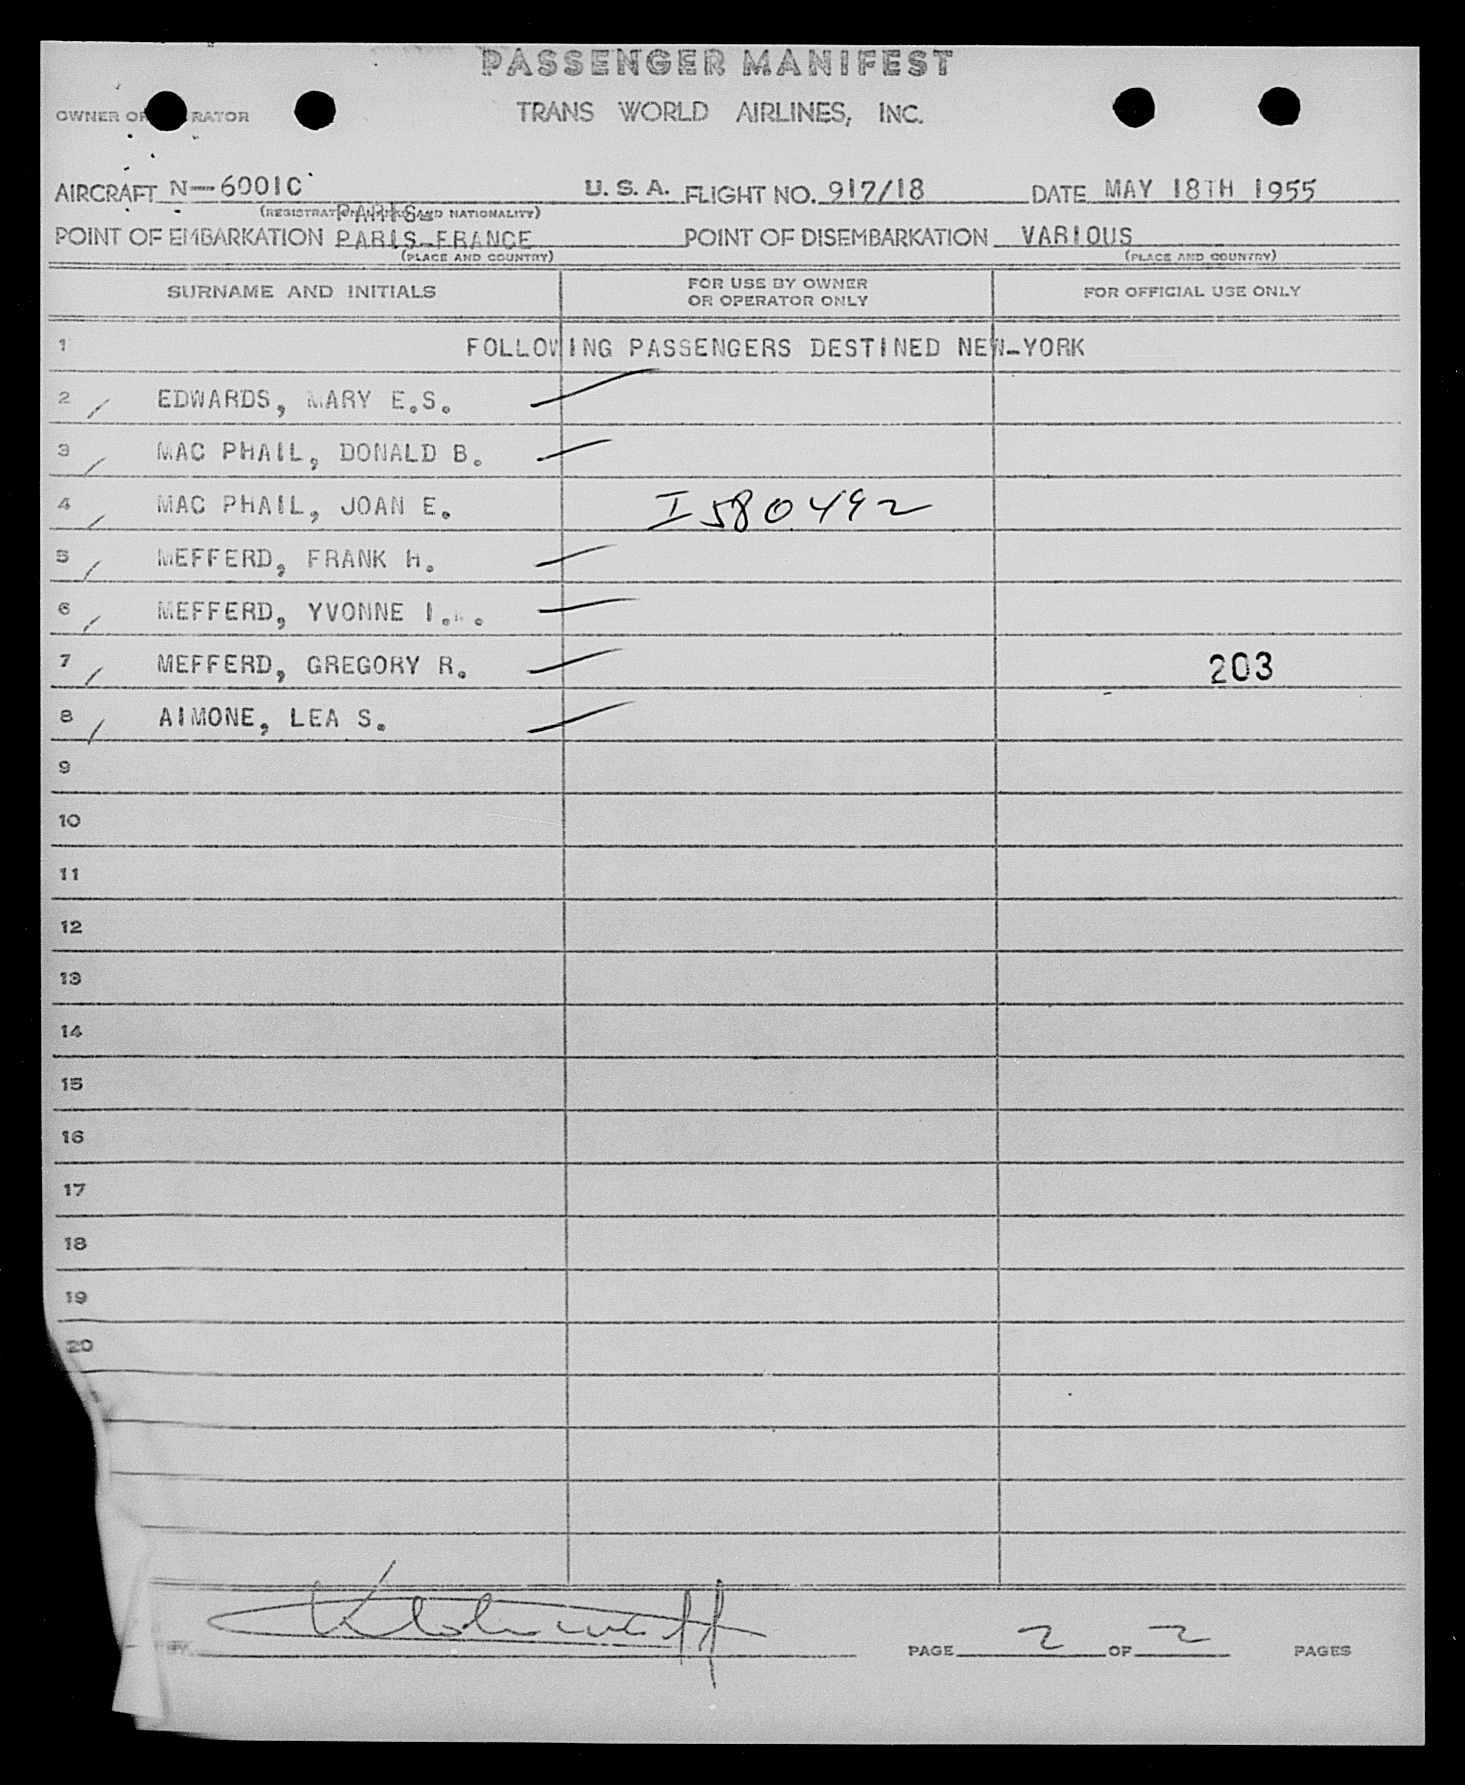 PASSENGER MANIFEST
OWNER OR OPERATOR
TRANS WORLD AIRLINES, INC.
AIRCRAFT N-6001C U. S. A. FLIGHT NO. 917/18 DATE MAY 18TH 1955
(REGISTRATION MARKS AND NATIONALITY)
PARIS
POINT OF EMBARKATION PARIS-FRANCE POINT OF DISEMBARKATION VARIOUS
(PLACE AND COUNTRY) (PLACE AND COUNTRY)
SURNAME AND INITIALS FOR USE BY OWNER OR OPERATOR ONLY FOR OFFICIAL USE ONLY
1 FOLLOWING PASSENGERS DESTINED NEW-YORK
2 / EDWARDS, MARY E.S.
3 / MAC PHAIL, DONALD B.
4 / MAC PHAIL, JOAN E. I 580492
5 / MEFFERD, FRANK H.
6 / MEFFERD, YVONNE I. .
7 / MEFFERD, GREGORY R. 203
8 / AIMONE, LEA S.
9
10
11
12
13
14
15
16
17
18
19
20
BY PAGE 2 OF 2 PAGES